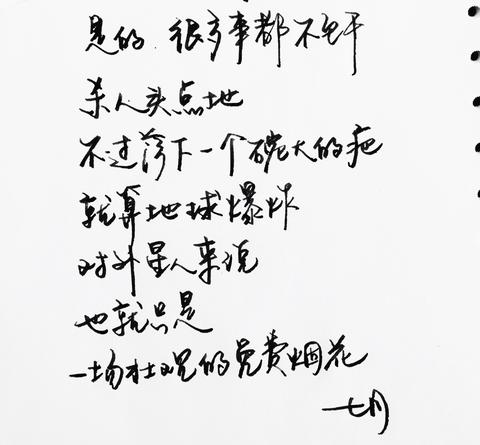 是的 很多事都不
杀人头点地
不过落下一个碗大的疤
就算地球爆炸
对外星人来说
也就只是
一场壮观的免费烟花
七月